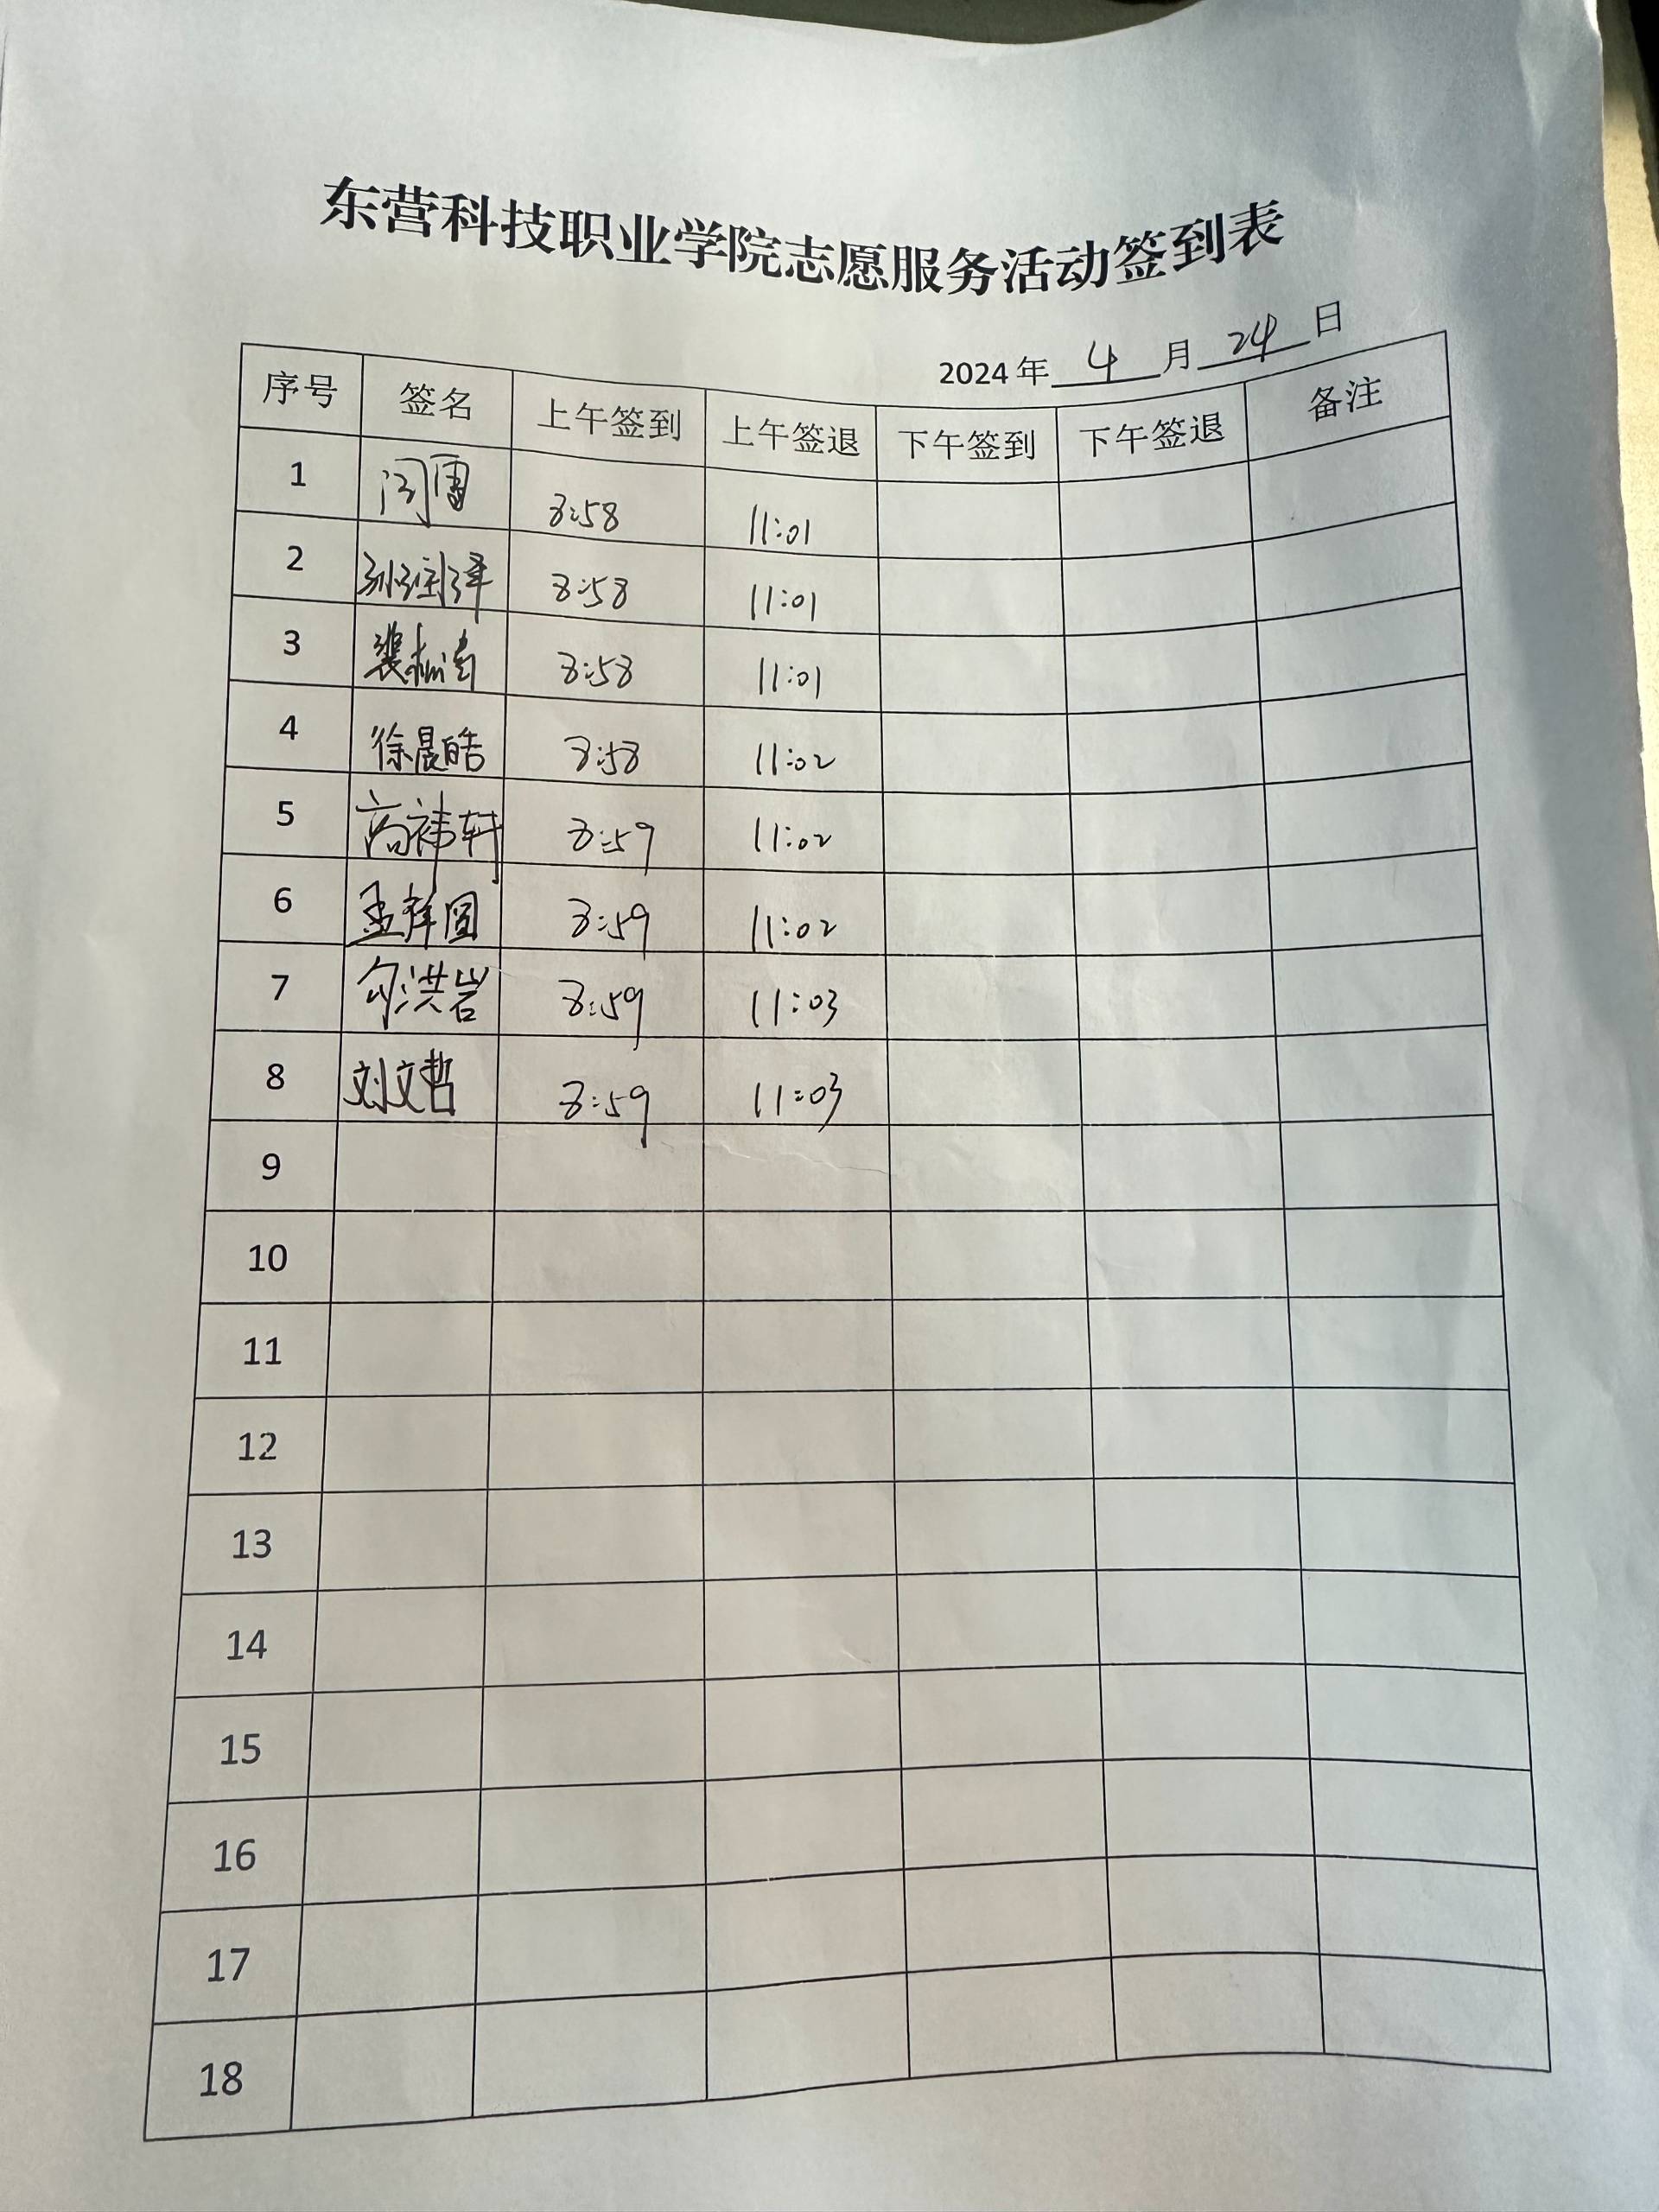 东营科技职业学院志愿服务活动签到表
2024 年 4 月 24 日
序号 签名 上午签到 上午签退 下午签到 下午签退 备注
1 闫雷 8:58 11:01
2 8:58 11:01
3 8:58 11:01
4 徐晨皓 8:58 11:02
5 高祎轩 8:59 11:02
6 孟祥圆 8:59 11:02
7 勾洪岩 8:59 11:03
8 刘文哲 8:59 11:03
9
10
11
12
13
14
15
16
17
18